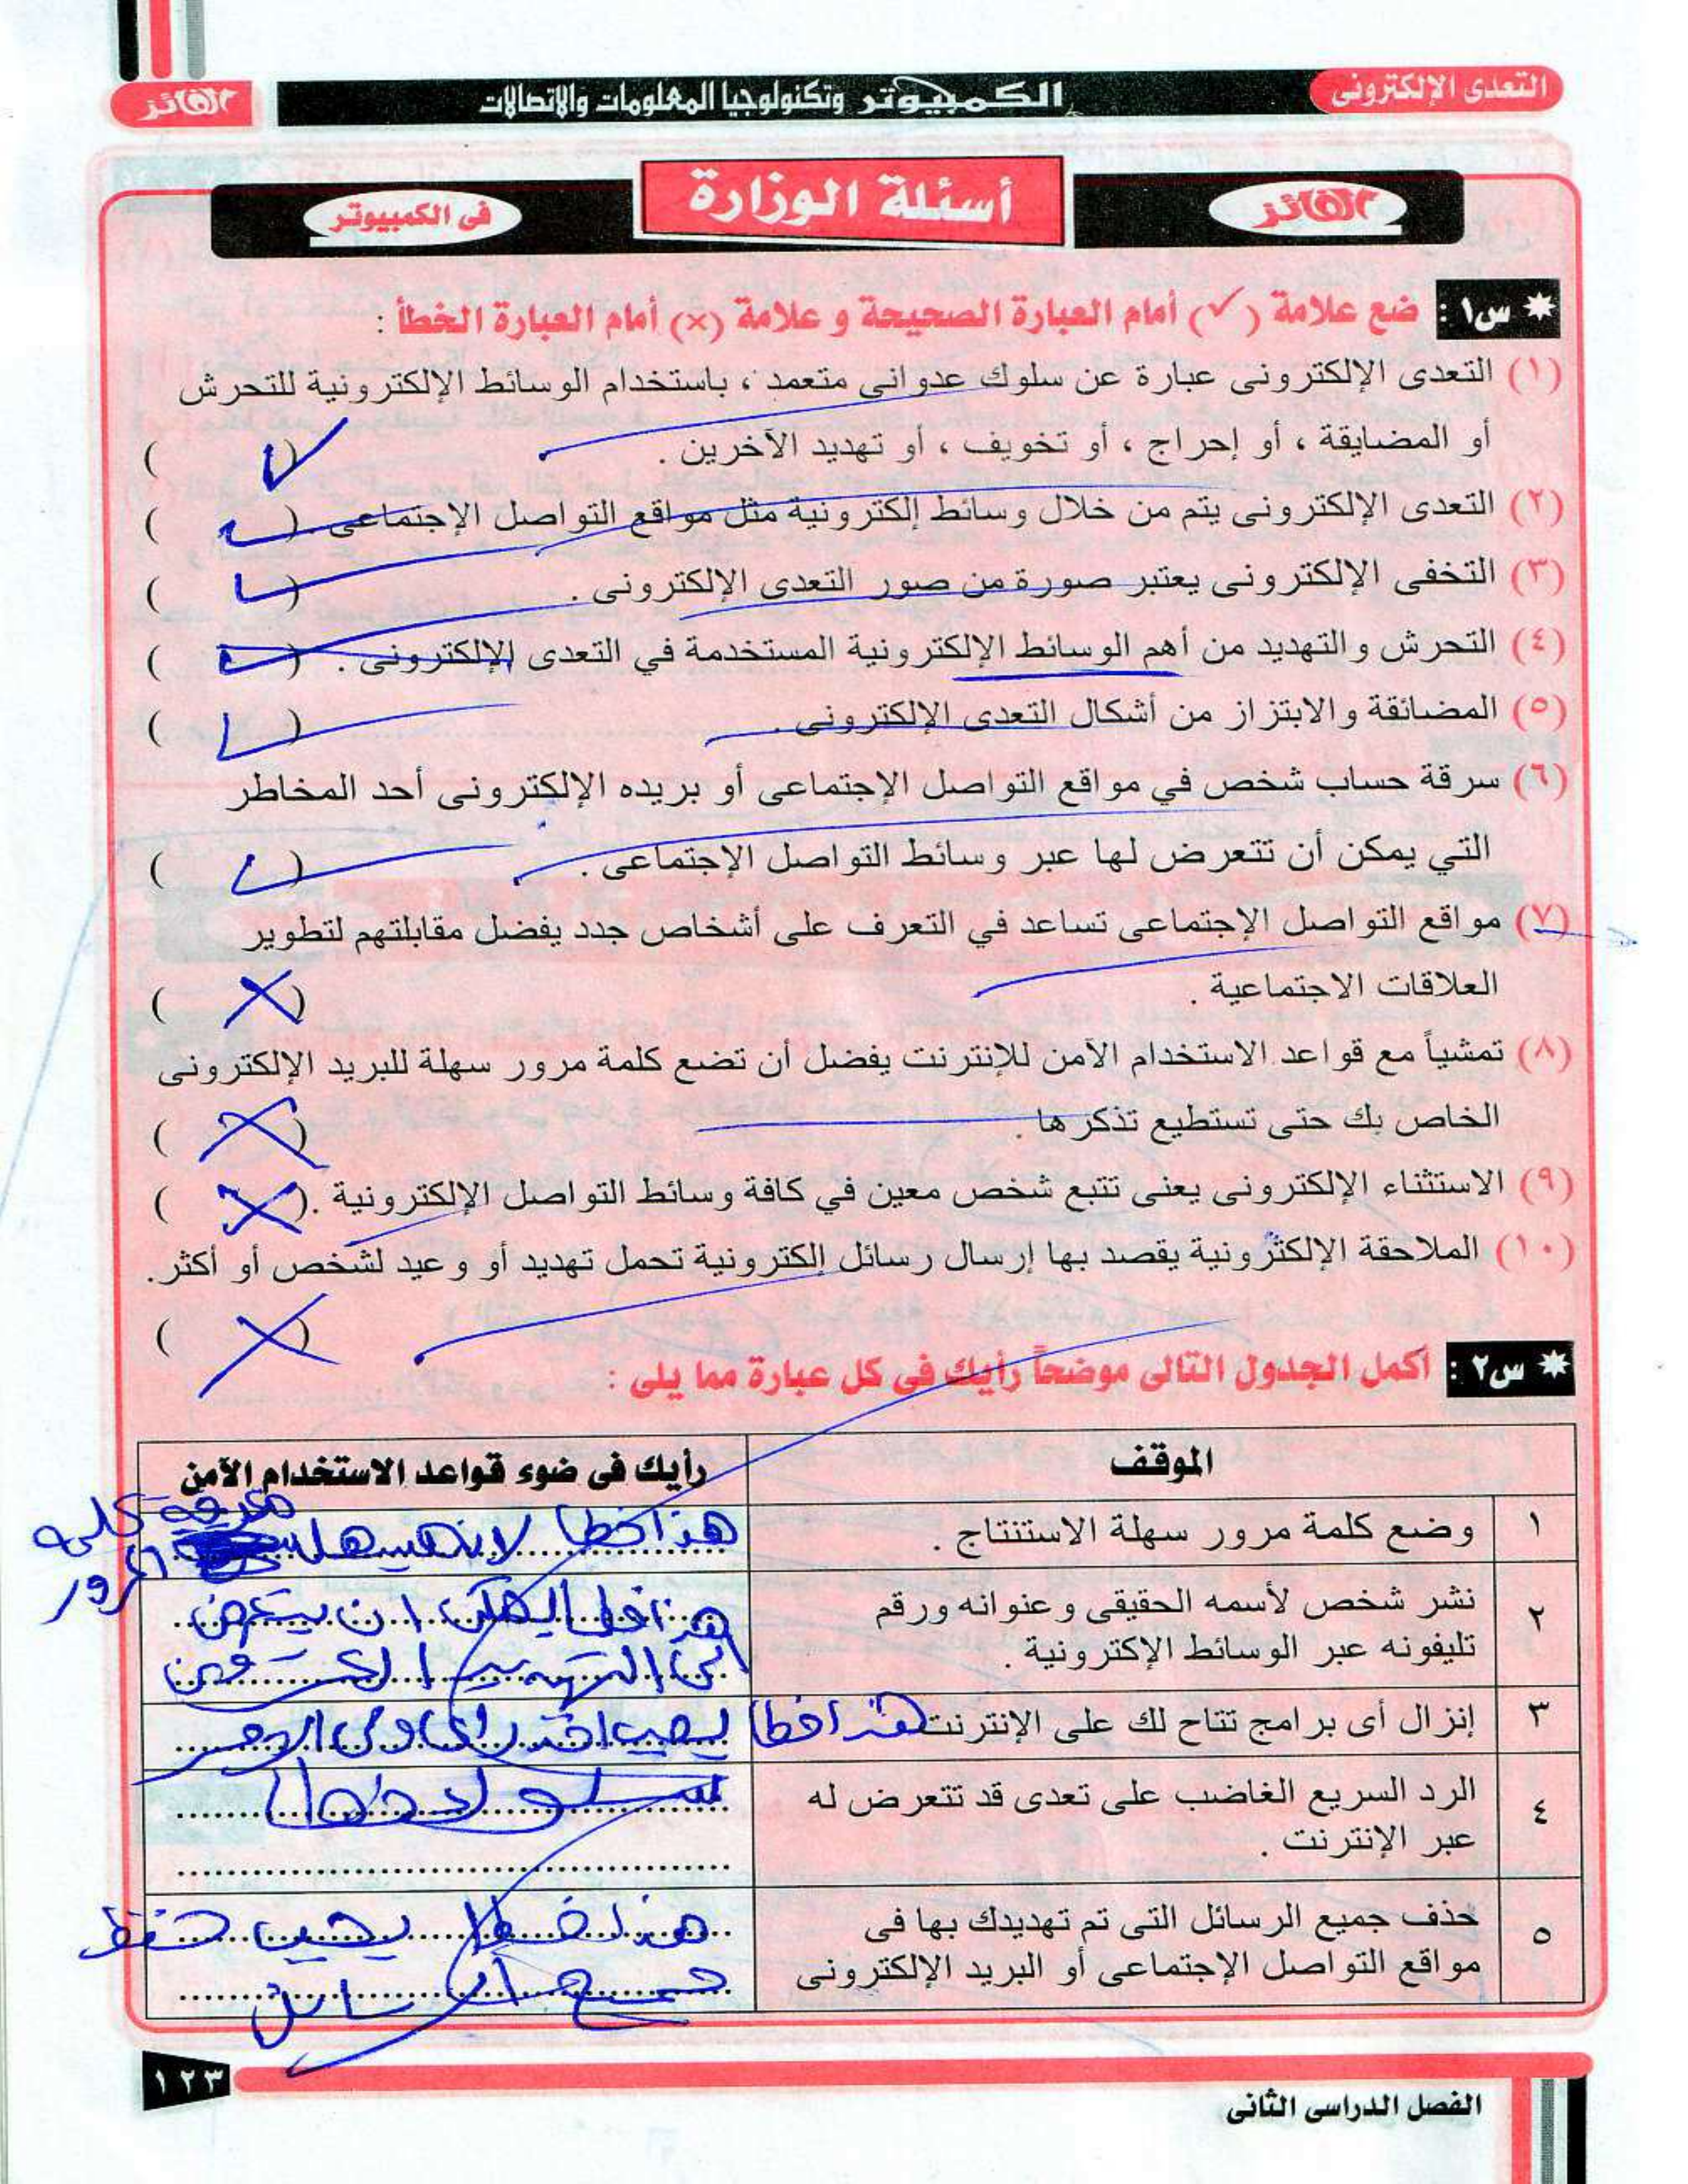 التعدى الإلكترونى
الكمبيوتر وتكنولوجيا المعلومات والإتصالات
الفائز
الفائز
أسئلة الوزارة
فى الكمبيوتر
* س١ : ضع علامة (✓) أمام العبارة الصحيحة و علامة (×) أمام العبارة الخطأ :
(١) التعدى الإلكترونى عبارة عن سلوك عدوانى متعمد ، باستخدام الوسائط الإلكترونية للتحرش
أو المضايقة ، أو إحراج ، أو تخويف ، أو تهديد الآخرين . ( ✓ )
(٢) التعدى الإلكترونى يتم من خلال وسائط إلكترونية مثل مواقع التواصل الإجتماعى ( ✓ )
(٣) التخفى الإلكترونى يعتبر صورة من صور التعدى الإلكترونى . ( ✓ )
(٤) التحرش والتهديد من أهم الوسائط الإلكترونية المستخدمة في التعدى الإلكترونى . ( ✓ )
(٥) المضائقة والابتزاز من أشكال التعدى الإلكترونى . ( ✓ )
(٦) سرقة حساب شخص في مواقع التواصل الإجتماعى أو بريده الإلكترونى أحد المخاطر
التي يمكن أن تتعرض لها عبر وسائط التواصل الإجتماعى . ( ✓ )
(٧) مواقع التواصل الإجتماعى تساعد في التعرف على أشخاص جدد يفضل مقابلتهم لتطوير
العلاقات الاجتماعية . ( × )
(٨) تمشياً مع قواعد الاستخدام الآمن للإنترنت يفضل أن تضع كلمة مرور سهلة للبريد الإلكترونى
الخاص بك حتى تستطيع تذكرها . ( × )
(٩) الاستثناء الإلكترونى يعنى تتبع شخص معين في كافة وسائط التواصل الإلكترونية . ( × )
(١٠) الملاحقة الإلكترونية يقصد بها إرسال رسائل إلكترونية تحمل تهديد أو وعيد لشخص أو أكثر.
( × )
* س٢ : أكمل الجدول التالى موضحاً رأيك فى كل عبارة مما يلى :
الموقف
رأيك فى ضوء قواعد الاستخدام الآمن
١ وضع كلمة مرور سهلة الاستنتاج .
هذا خطا لانه يسهل معرفة كلمه
المرور
٢ نشر شخص لأسمه الحقيقى وعنوانه ورقم
تليفونه عبر الوسائط الإكترونية .
هذا خطا يمكن ان يتعرض
الى التهديد
٣ إنزال أى برامج تتاح لك على الإنترنت
هذا خطا يجب اخذ راى ولى الامر
٤ الرد السريع الغاضب على تعدى قد تتعرض له
عبر الإنترنت .
سلوك خطا
٥ حذف جميع الرسائل التى تم تهديدك بها فى
مواقع التواصل الإجتماعى أو البريد الإلكترونى
هذا خطا يجب حفظ
جميع الرسائل
١٢٣
الفصل الدراسى الثانى